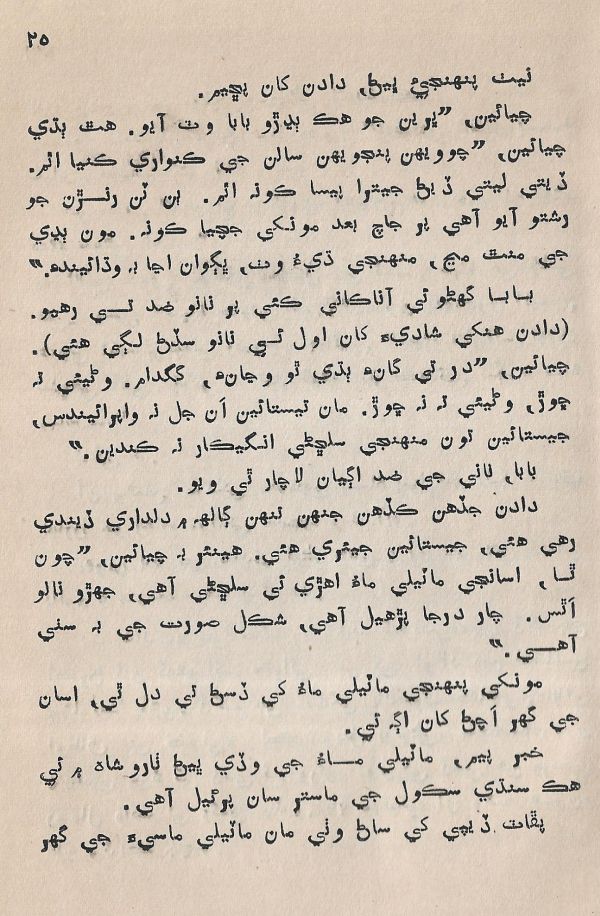 ٢٥
نيٺ پنهنجيءَ ڀيڻ، دادن کان پڇيم.
چيائين، ”ڀرين جو هڪ ٻڍڙو بابا وٽ آيو. هٿ ٻڌي
چيائين، ”چوويهن پنجويهن سالن جي ڪنواري ڪنيا اٿم.
ڏيتي ليتي ڏيڻ جيترا پيسا ڪونہ اٿم. ٻن ٽن رنڙن جو
رشتو آيو آهي پر جاچ بعد مونکي جچيا ڪونہ. مون ٻڍي
جي منٿ مڃ، منهنجي ڌيءُ وٺ، ڀڳوان اڃا بہ وڌائيندہ.“
بابا گهڻو ئي آناڪاني ڪئي پر نانو ضد تـي رهيو.
(دادن هنکي شاديءَ کان اول ئـي نانو سڏڻ لڳي هئي).
چيائين، ”در تي گانءِ ٻڌي ٿو وڃانءِ، گگدام. وڻيئي تہ
ڇوڙ، وڻيئي تہ نہ ڇوڙ. مان تيستائين اَن جل نہ واپرائيندس،
جيستائين تون منهنجي سلڇڻي انگيڪار نہ ڪندين.“
بابا، ناني جي ضد اڳيان لاچار ٿي ويو.
دادن جڏهن ڪڏهن جنهن تنهن ڳالهہ ۾ دلداري ڏيندي
رهي هئي، جيستائين جيئري هئي. هينئر بہ چيائين، ”چون
ٿـا، اسانجي ماٽيلي ماءُ اهڙي ئي سلڇڻي آهي، جهڙو نالو
اَٿس. چار درجا پڙهيل آهي، شڪل صورت جي بہ سٺي
آهـي.“
مونکي پنهنجي ماٽيلي ماءُ کي ڏسڻ تي دل ٿي، اسان
جي گهر اَچڻ کان اڳ ئي.
خبر پيم، ماٽيلي مـاءُ جي وڏي ڀيڻ ٺاروشاہ ۾ ئي
هڪ سنڌي سڪول جي ماستر سان پرڻيل آهي.
پڦاٽ ڏيچي کي ساڻ وٺي مان ماٽيلي ماسيءَ جي گهر